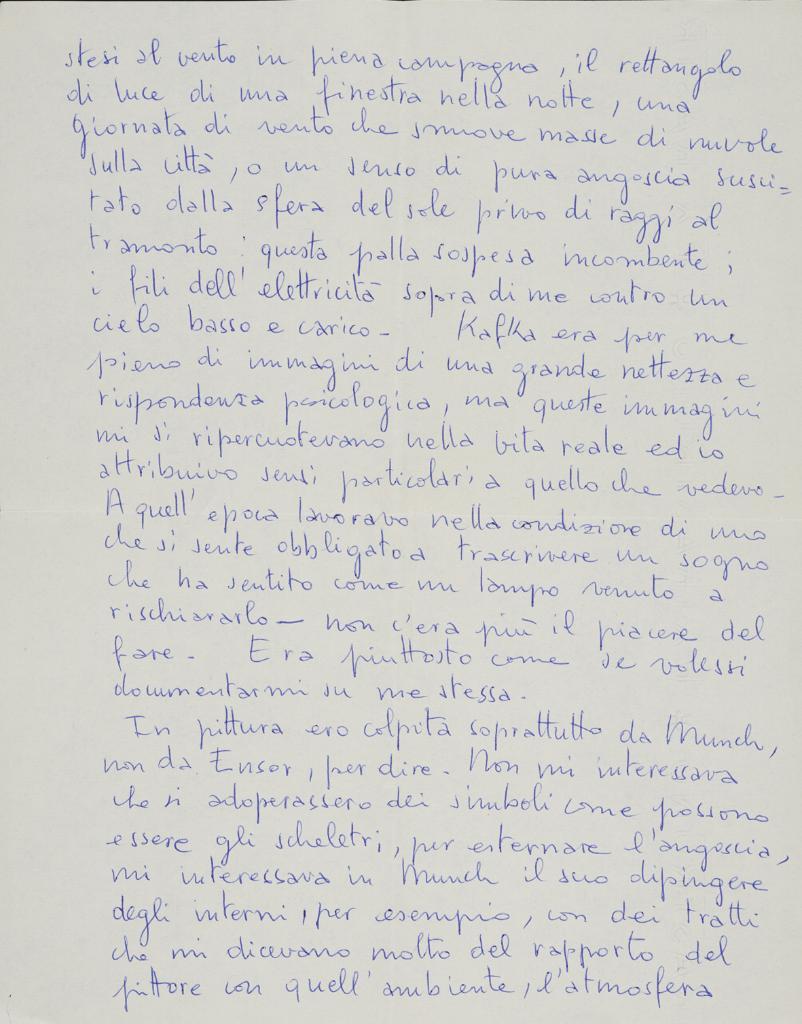 stesi al vento in piena campagna, il rettangolo
di luce di una finestra nella notte, una
giornata di vento che smuove masse di nuvole
sulla città, o un senso di pura angoscia susci=
tato dalla sfera del sole privo di raggi al
tramonto: questa palla sospesa incombente;
i fili dell'elettricità sopra di me contro un
cielo basso e carico_ Kafka era per me
pieno di immagini di una grande nettezza e
rispondenza psicologica, ma queste immagini
mi si ripercuotevano nella vita reale ed io
attribuivo sensi particolari a quello che vedevo_
A quell'epoca lavoravo nella condizione di uno
che si sente obbligato a trascrivere un sogno
che ha sentito come un lampo venuto a
rischiararlo_ non c'era più il piacere del
fare_ Era piuttosto come se volessi
documentarmi su me stessa.
In pittura ero colpita soprattutto da Munch,
non da Ensor, per dire. Non mi interessava
che si adoperassero dei simboli come possono
essere gli scheletri, per esternare l'angoscia,
mi interessava in Munch il suo dipingere
degli interni, per esempio, con dei tratti
che mi dicevano molto del rapporto del
pittore con quell'ambiente, l'atmosfera